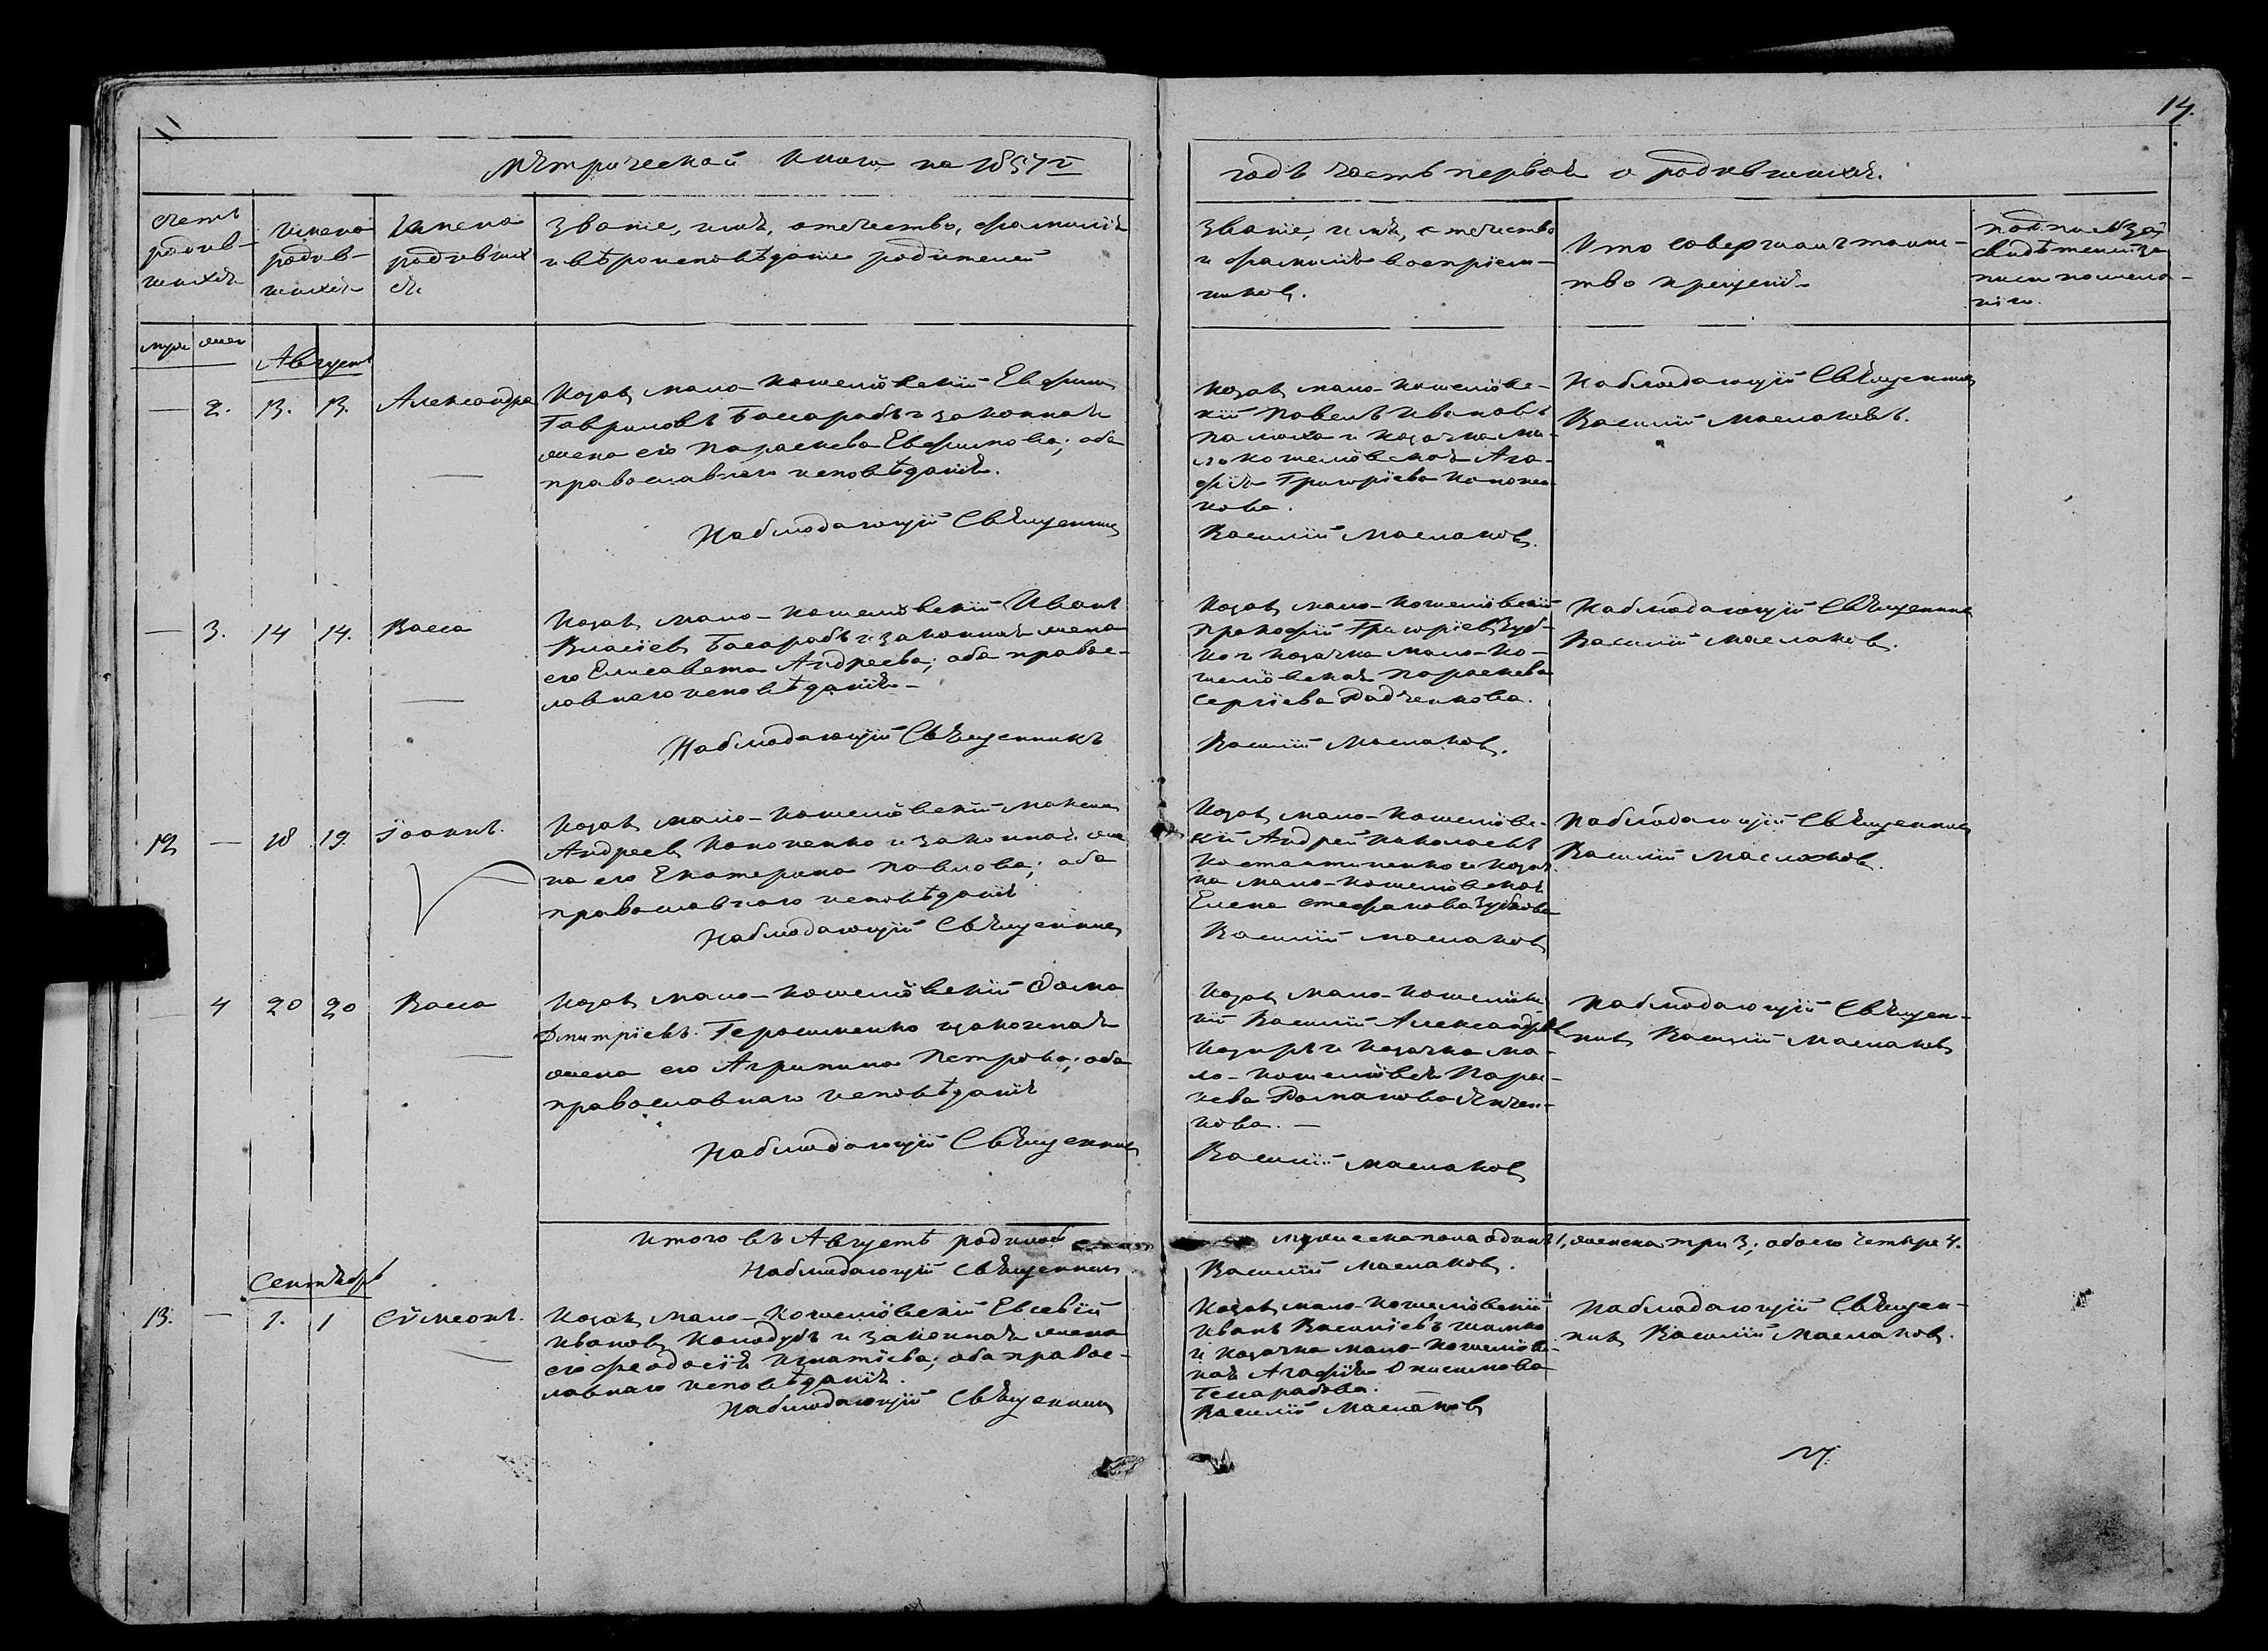 14.
Метрической книги на 1857й
годъ часть первая о родившихся.
Счетъ
родив-
шихся
Имена
родив-
шихся
Имена
родивших
ся
Званіе, имя, отечество, фамилія
и вѣроисповѣданіе родителей
Званіе, имя, отечество
и фамилія воспріем-
никовъ.
Кто совершалъ таин-
ство крещенія
муж жен
Августъ
— 2. 13. 13. Александра
Козакъ мало-кошелівскій Ефимъ
Гавриловъ Бассарабъ и законная
жена его Параскева Ефимова; оба
православнаго исповѣданія.
Наблюдающій Священникъ
Козакъ мало-кошелівс-
кій Павелъ Ивановъ
и козачка ма-
ло кошелівская Ага-
фія Григоріева Кононен
кова.
Василій Маслаковъ.
Наблюдающій Священникъ
Василій Маслаковъ.
— 3. 14 14. Васса
Козакъ мало-кошелівскій Иванъ
Власіевъ Басарабъ и законная жена
его Елисавета Андреева; оба правос-
лавнаго исповѣданія —
Наблюдающій Священникъ
Козакъ мало-кошелівскій
Прокофій Григоріевъ Зуб-
ко и козачка мало-ко-
шелівская Параскева
Сергіева Радченкова.
Василій Маслаковъ.
Наблюдающій Священникъ
Василій Маслаковъ.
12 — 18 19. Іоаннъ.
Козакъ мало-кошелівскій Максимъ
Андреевъ Кононенко и законная же
на его Екатерина Павлова; оба
православнаго исповѣданія
Наблюдающій Священникъ
Козакъ мало-кошелівс-
кій Андрей Николаевъ
Костантиненко и козач
ка мало-кошелівская
Елена Стефанова Зубкова
Василій Маслаковъ
Наблюдающій Священникъ
Василій Маслаковъ.
— 4 20 20 Васса
Козакъ мало-кошелівскій Фома
Дмитріевъ Герасименко и законная
жена его Агрипина Петрова; оба
православнаго исповѣданія
Наблюдающій Священникъ
Козакъ мало-кошелівс
кій Василій Александровъ
Козирь и козачка ма-
ло-кошелівск. Парас-
кева Романова
кова. —
Василій Маслаковъ
Наблюдающій Священ-
никъ Василій Маслаковъ
Итого въ Августѣ родилось
мужеска пола одинъ 1, женска три 3; обоего четыре 4.
Наблюдающій Священникъ
Василій Маслаковъ.
Сентябрь
13. — 1. 1 Сѵмеонъ.
Козакъ мало-кошелівскій Евсевій
Ивановъ Колодубъ и законная жена
его Феодосія Игнатіева; оба правос-
лавнаго исповѣданія.
Наблюдающій Священникъ
Козакъ мало-кошелівскій
Иванъ Василіевъ
и козачка мало-кошелівс-
кая Агафія Онисимова
Бесарабова.
Василій Маслаковъ
Наблюдающій Священ-
никъ Василій Маслаковъ.